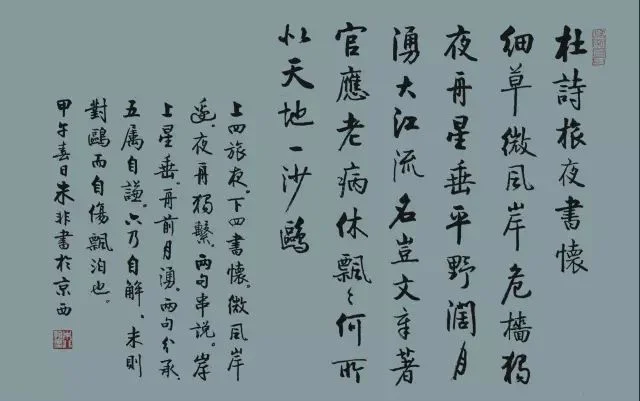 杜詩旅夜書懷
細草微風岸危檣獨
夜舟星垂平野闊月
湧大江流名豈文章著
官應老病休飄〻何所
似天地一沙鷗
上四旅夜。下四書懷。微風岸
邊。夜舟獨繫。兩句串說。岸
上星垂。舟前月湧。兩句分承。
五属自謙。六乃自解。末則
對鷗而自傷飄泊也。
甲午春日朱非書於京西